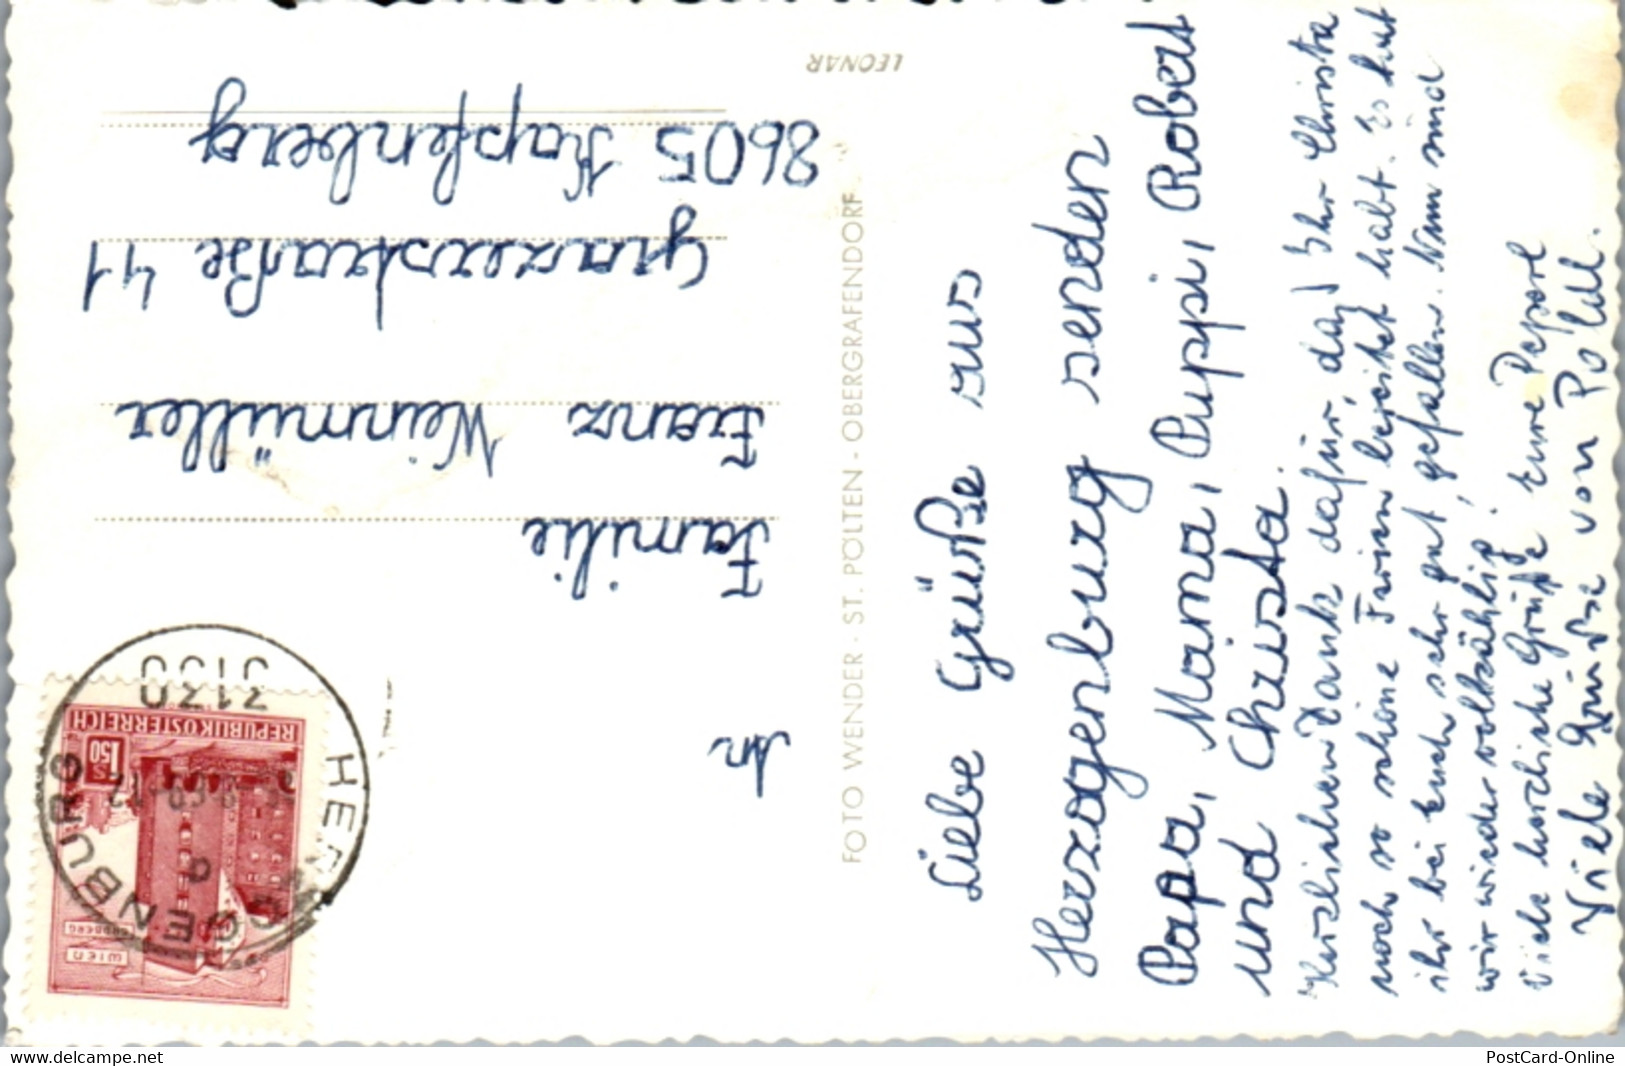 Liebe Grüße aus
Herzogenburg senden
Papa, Mama, Puppi, Robert
und Christa.
Herzlichen Dank dafür, daß Ihr Christa
noch so schöne Ferien bereitet habt. Es hat
ihr bei Euch sehr gut gefallen. Nun sind
wir wieder vollzählig!
Viele herzliche Grüße Eure
Viele Grüße von
An
Familie
Franz Weinmüller
Grazerstraße 41
8605 Kapfenberg
LEONAR
FOTO WENDER - ST. PÖLTEN - OBERGRAFENDORF
3130
HERZOGENBURG
REPUBLIK ÖSTERREICH
S 1.50
WIEN
PostCard-Online
https://www.delcampe.net